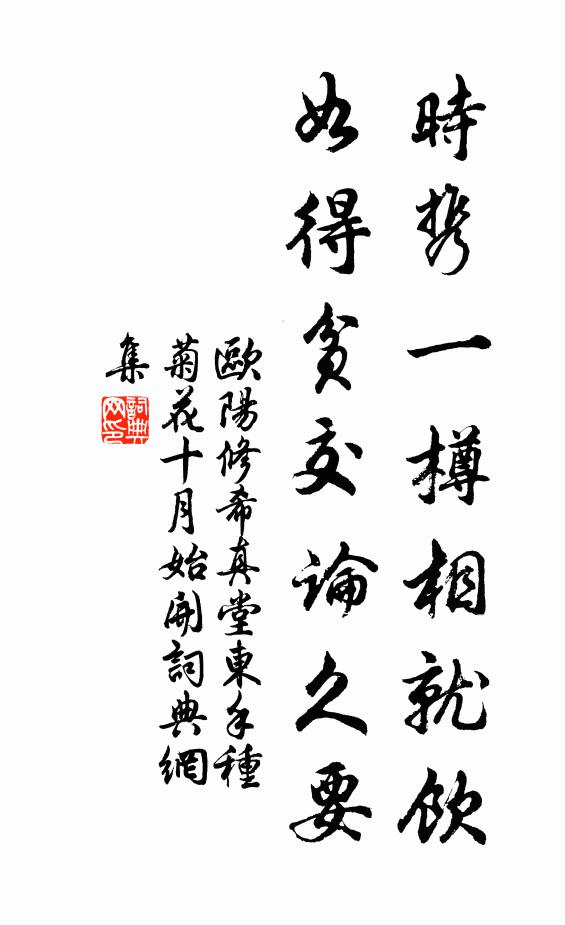 時携一樽相就飲
如得貧交論久要
歐陽修希真堂東手種
菊花十月始開詞典網
集
詞典
网印